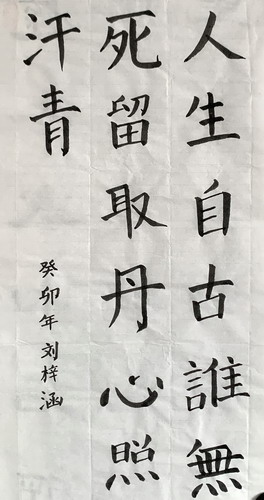 人生自古誰無
死留取丹心照
汗青
癸卯年刘梓涵